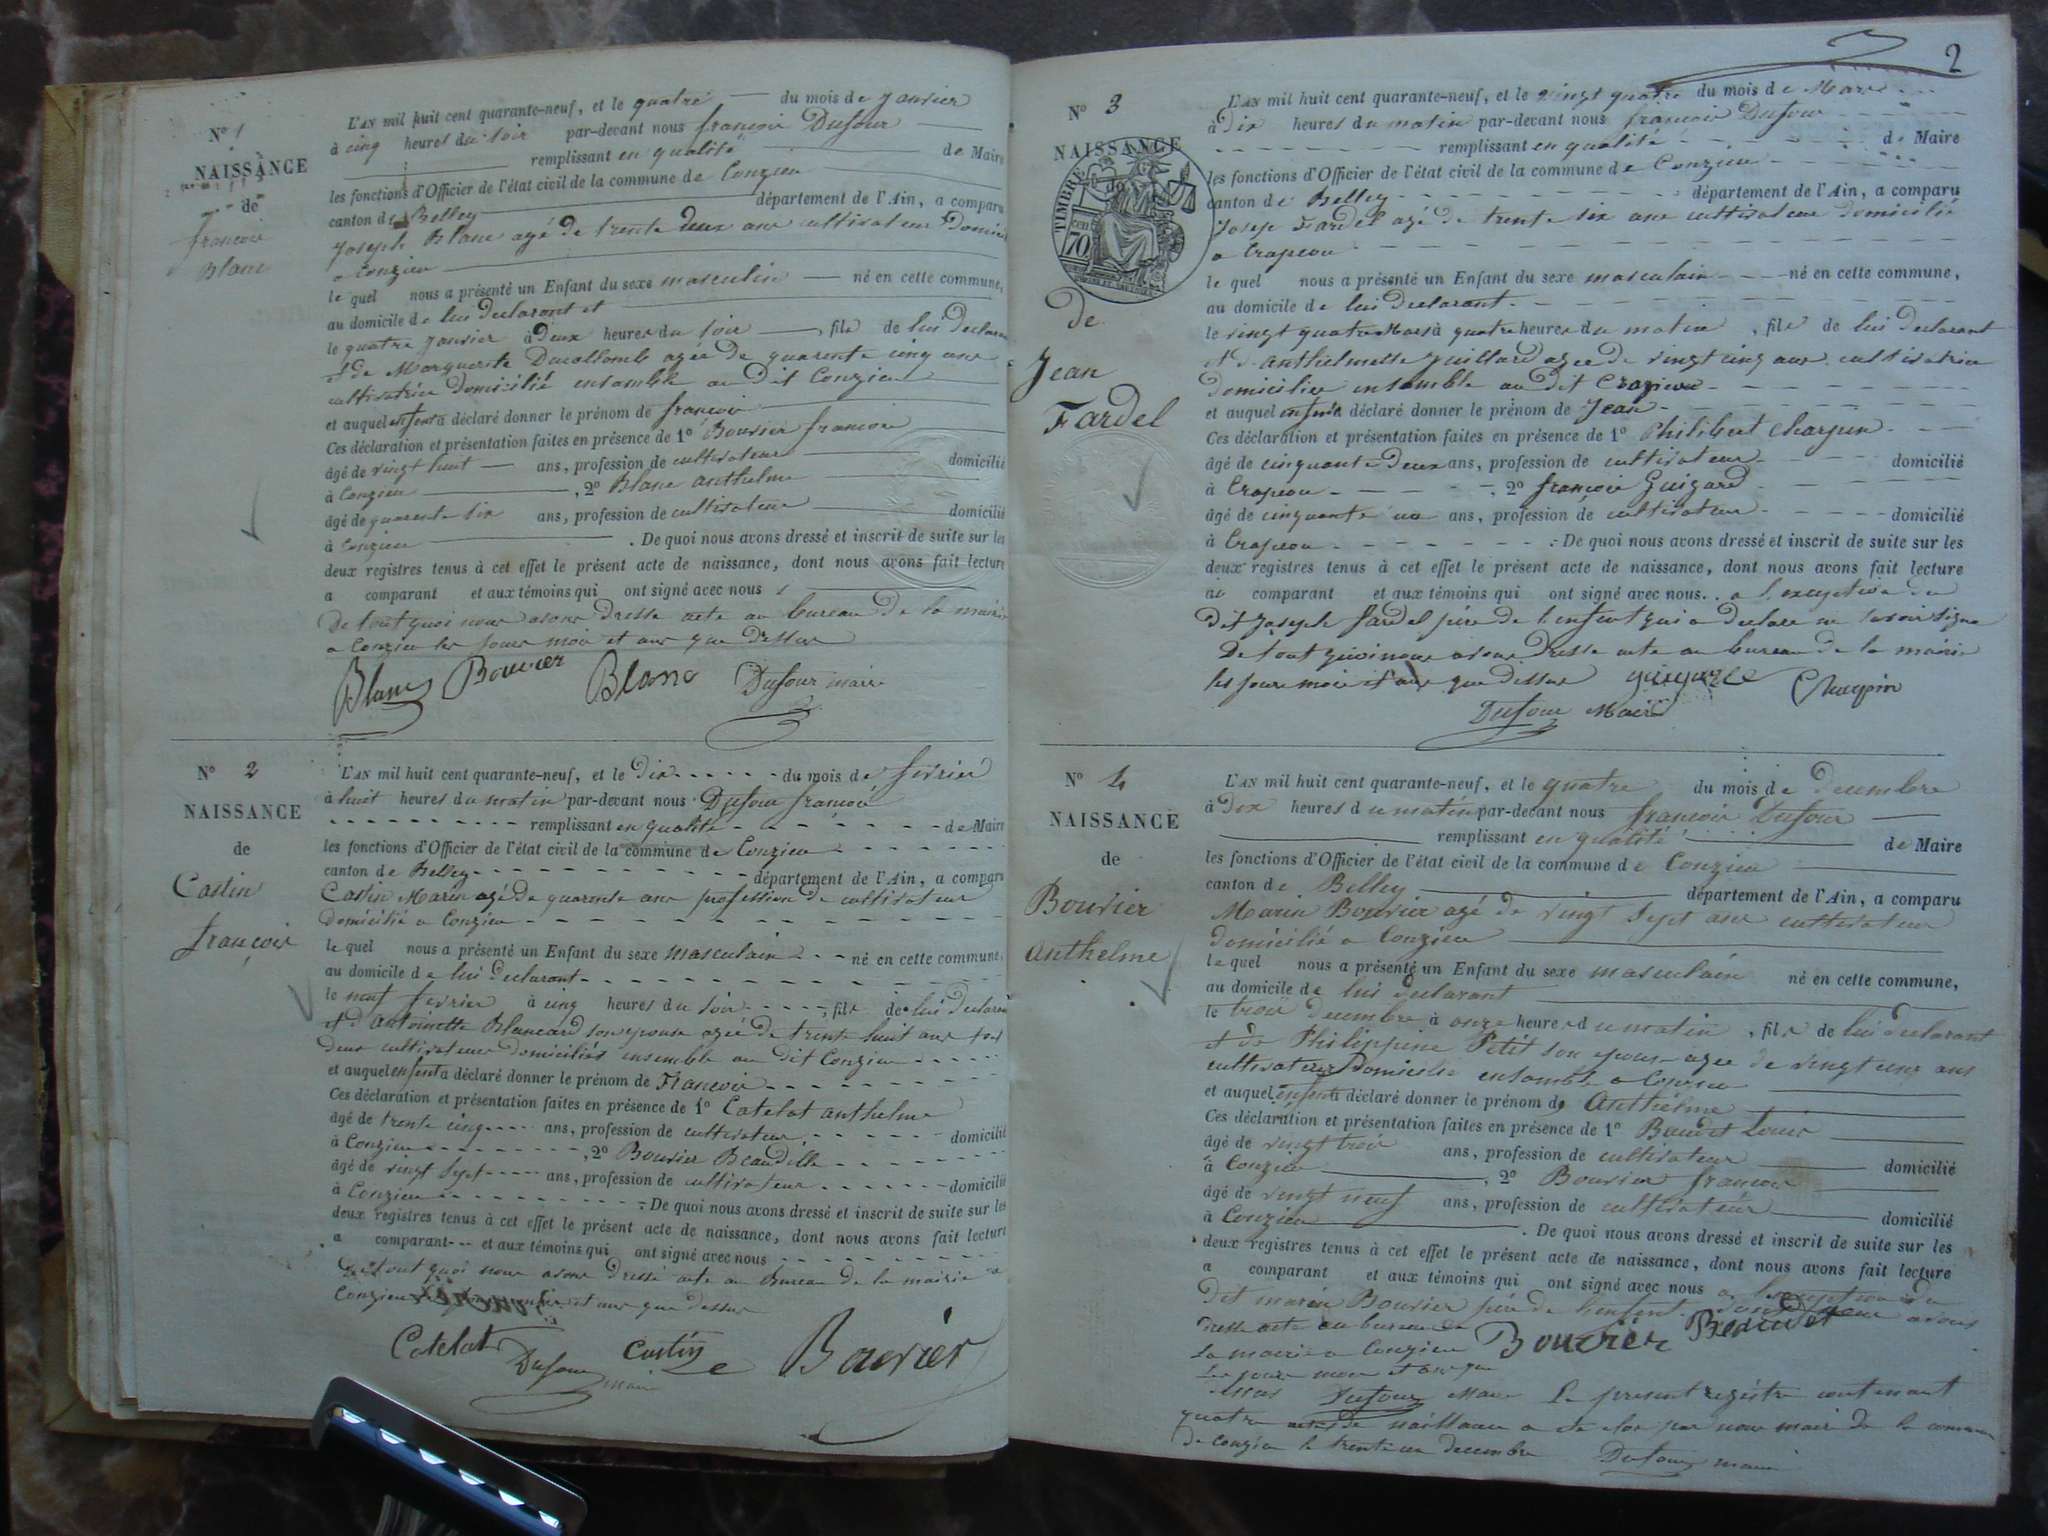 N° 1
NAISSANCE
de
françois
Blanc
L'AN mil huit cent quarante-neuf, et le quatre du mois de Janvier
à cinq heures du soir par-devant nous françois Dufour
remplissant en qualité de Maire
les fonctions d'Officier de l'état civil de la commune de Conzieu
canton de Belley département de l'Ain, a comparu
Joseph Blanc agé de trente deux ans cultivateur Domici
a Conzieu
le quel nous a présenté un Enfant du sexe masculin né en cette commune,
au domicile de lui declarant et
le quatre Janvier à Deux heures du soir, fils de lui declara
et de Marguerite agée de quarente cinq ans
cultivatrice domicilié ensamble au dit Conzieu
et auquel enfant a déclaré donner le prénom de françois
Ces déclaration et présentation faites en présence de 1° Bouvier francois
âgé de vingt huit ans, profession de cultivateur domicilié
à Conzieu, 2° Blanc anthelme
âgé de quarente six ans, profession de cultivateur domicilié
à Conzieu. De quoi nous avons dressé et inscrit de suite sur les
deux registres tenus à cet effet le présent acte de naissance, dont nous avons fait lecture
a comparant et aux témoins qui ont signé avec nous
De tout quoi nous avons dresse acte au bureau de la mairie
a Conzieu les jours moi et ans que dessus
Blanc Bouvier Blanc Dufour maire
N° 2
NAISSANCE
de
Castin
françois
L'AN mil huit cent quarante-neuf, et le Dix du mois de fevrier
à huit heures du matin par-devant nous Dufour francois
remplissant en qualité de Maire
les fonctions d'Officier de l'état civil de la commune de Conzieu
canton de Belley département de l'Ain, a comparu
Castin Marin agé de quarente ans profession de cultivateur
domicilié a Conzieu
le quel nous a présenté un Enfant du sexe masculain né en cette commune,
au domicile de lui declarant
le neuf fevrier à cinq heures du soir, fils de lui declaran
et d'Antoinette Blancard son epouse agée de trente huit ans tous
deux cultivateurs domiciliés ensemble au dit Conzieu
et auquel enfent a déclaré donner le prénom de Francois
Ces déclaration et présentation faites en présence de 1° Catelat anthelme
âgé de trente cinq ans, profession de cultivateur domicilié
à Conzieu, 2° Bouvier
âgé de vingt sept ans, profession de cultivateur domicilié
à Conzieu. De quoi nous avons dressé et inscrit de suite sur les
deux registres tenus à cet effet le présent acte de naissance, dont nous avons fait lecture
a comparant et aux témoins qui ont signé avec nous
De tout quoi nous avons dressé acte au Bureau de la mairie a
Conzieu et ans que dessus
Catelat Dufour maire Castin Bouvier
2
N° 3
NAISSANCE
TIMBRE
70
de
Jean
Fardel
L'AN mil huit cent quarante-neuf, et le vingt quatre du mois de Mars
à Dix heures du matin par-devant nous francois Dufour
remplissant en qualité de Maire
les fonctions d'Officier de l'état civil de la commune de Conzieu
canton de Belley département de l'Ain, a comparu
Josep Fardel agé de trente six ans cultivateur domicilié
a Crapeou
le quel nous a présenté un Enfant du sexe masculain né en cette commune,
au domicile de lui declarant
le vingt quatre Mars à quatre heures du matin, fils de lui declarant
et d'Anthelmette Juillard agée de vingt cinq ans cultivatrice
domicilier ensamble au dit
et auquel enfant a déclaré donner le prénom de Jean
Ces déclaration et présentation faites en présence de 1° Philibert Charpin
âgé de cinquante Deux ans, profession de cultivateur domicilié
à Crapeou, 2° françois Guigard
âgé de cinquante un ans, profession de cultivateur domicilié
à Crapeou. De quoi nous avons dressé et inscrit de suite sur les
deux registres tenus à cet effet le présent acte de naissance, dont nous avons fait lecture
au comparant et aux témoins qui ont signé avec nous a l'exception du
dit Joseph fardel père de l'enfent qui a declare ne savoir signe
De tout quoi nous avons Dresse acte au bureau de la mairie
les jours moi et ans que dessus Charpin
Dufour Maire
N° 4
NAISSANCE
de
Bouvier
Anthelme
L'AN mil huit cent quarante-neuf, et le quatre du mois de decembre
à Dix heures du matin par-devant nous francois Dufour
remplissant en qualité de Maire
les fonctions d'Officier de l'état civil de la commune de Conzieu
canton de Belley département de l'Ain, a comparu
Marin Bouvier agé de vingt sept ans cultivateur
domicilié a Conzieu
le quel nous a présenté un Enfant du sexe masculain né en cette commune,
au domicile de lui declarant
le trois decembre à onze heures du matin, fils de lui declarant
et de Philippine Petit son epouse agee de vingt ans
cultivateurs Domicilié ensamble a Conzieu
et auquel enfent a déclaré donner le prénom de Anthelme
Ces déclaration et présentation faites en présence de 1° Baudet Louis
âgé de vingt trois ans, profession de cultivateur domicilié
à Conzieu, 2° Bouvier francois
âgé de vingt neuf ans, profession de cultivateur domicilié
à Conzieu. De quoi nous avons dressé et inscrit de suite sur les
deux registres tenus à cet effet le présent acte de naissance, dont nous avons fait lecture
a comparant et aux témoins qui ont signé avec nous a l'exception du
dit marin Bouvier père de l'enfent nous avons
dresse acte au bureau de Bouvier Beaudet
la mairie a Conzieu
les jours mois et ans que
dessus Dufour Maire Le present registre contenant
quatre actes de naissance a été clos par nous maire de la commune
de Conzieu le trente un decembre Dufour maire